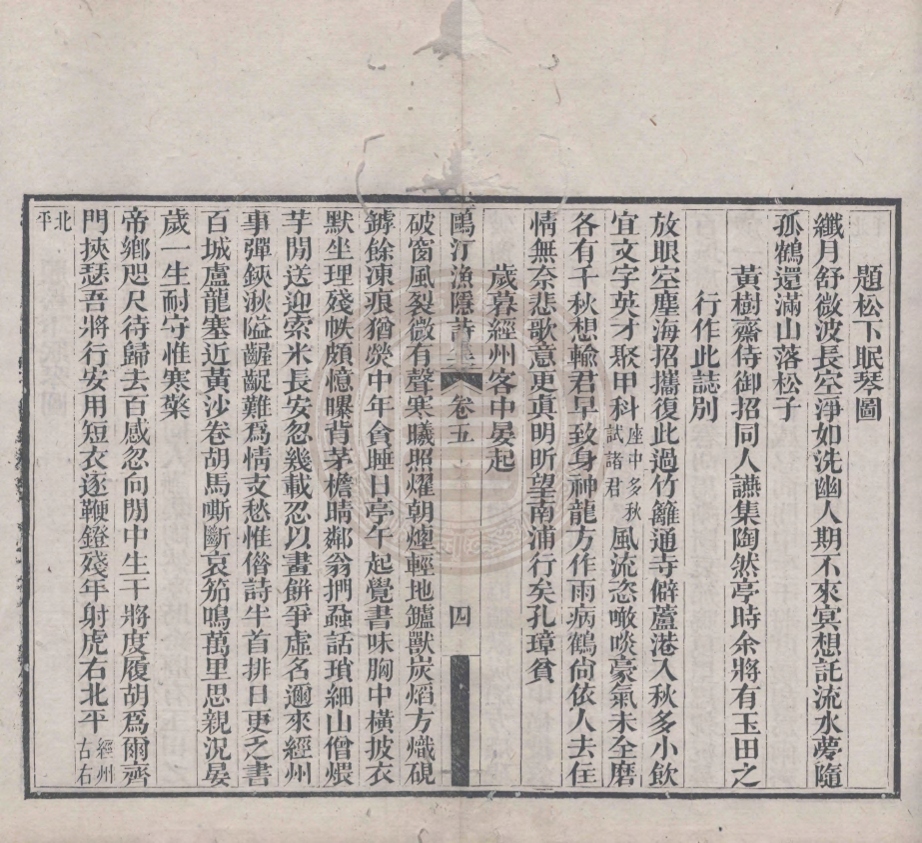 題松下眠琴圖
纖月舒微波長空淨如洗幽人期不來冥想託流水夢隨
孤鶴還滿山落松子
黃樹齋侍御招同人讌集陶然亭時余將有玉田之
行作此誌別
放眼空塵海招攜復此過竹籬通寺僻蘆港入秋多小飲
宜文字英才聚甲科座中多秋試諸君風流恣噉啖豪氣未全磨
各有千秋想輸君早致身神龍方作雨病鶴尙依人去住
情無奈悲歌意更眞明昕望南浦行矣孔璋貧
歲暮經州客中晏起
鷗汀漁隱詩集 卷五 四
破窗風裂微有聲寒曦照燿朝煙輕地鑪獸炭熖方熾硯
鏬餘凍痕猶熒中年貪睡日亭午起覺書味胸中橫披衣
默坐理殘帙頗憶曝背茅檐晴鄰翁捫蝨話瑣細山僧煨
芋閒送迎索米長安忽幾載忍以畫餠爭虛名邇來經州
事彈鋏湫隘齷齪難爲情支愁惟僗詩半首排日更乏書
百城盧龍塞近黃沙卷胡馬嘶斷哀笳鳴萬里思親況晏
歲一生耐守惟寒檠
帝鄉咫尺待歸去百感忽向閒中生干將度履胡爲爾齊
門挾瑟吾將行安用短衣逐鞭鐙殘年射虎右北平經州古右
北平